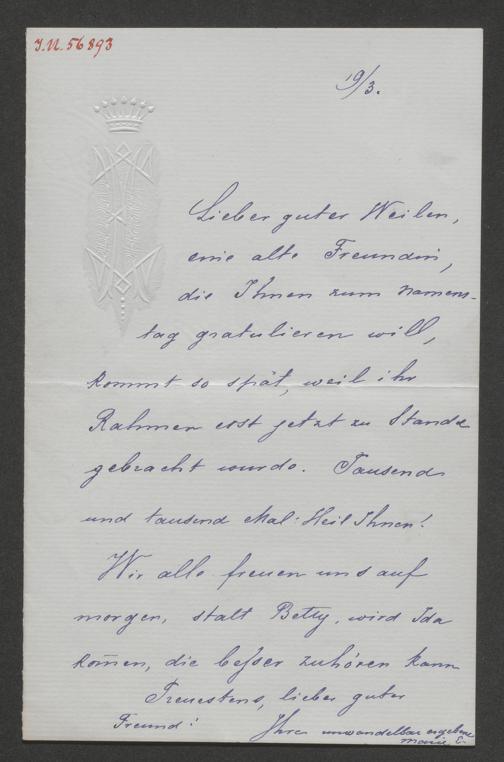 J.N. 56893
19/3.
Lieber guter Weilen,
eine alte Freundin,
die Ihnen zum Namens-
tag gratulieren will,
kommt so spät, weil ihr
Rahmen erst jetzt zu Stande
gebracht wurde. Tausend
und tausend Mal: Heil Ihnen!
Wir alle freuen uns auf
morgen, statt Betty, wird Ida
kom̅en, die beſser zuhören kann
Treuestens, lieber guter
Freund! Ihre unwandelbar ergebene
Marie E.